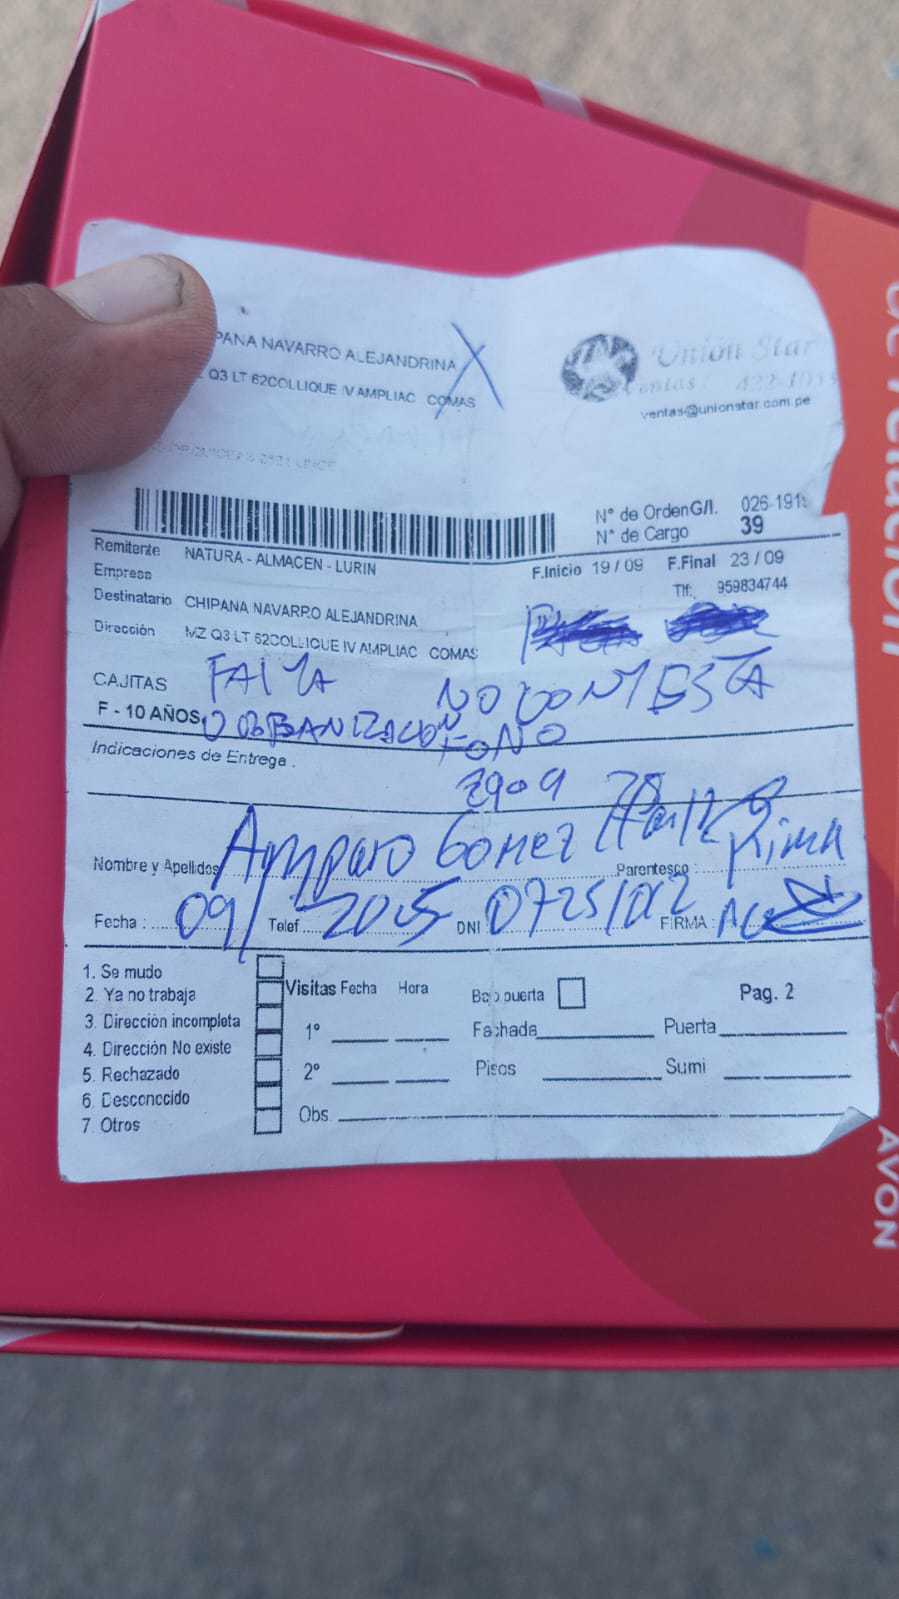 PANA NAVARRO ALEJANDRINA
Q3 LT 62COLLIQUE IV AMPLIAC COMAS
Unión Star
Ventas
ventas@unionstar.com.pe
N° de OrdenG/I. 026-191
N° de Cargo 39
Remitente NATURA - ALMACEN - LURIN
F.Inicio 19 / 09 F.Final 23 / 09
Empresa
Tlf: 959834744
Destinatario CHIPANA NAVARRO ALEJANDRINA
Dirección MZ Q3 LT 62COLLIQUE IV AMPLIAC COMAS
CAJITAS FALTA NO CONTESTA
F - 10 AÑOS FONO
Indicaciones de Entrega .
2909
Nombre y Apellidos Amparo Gomez Parentesco :
Fecha : 09/ Telef 2025 DNI FIRMA
1. Se mudo
2. Ya no trabaja
3. Dirección incompleta
4. Dirección No existe
5. Rechazado
6. Desconocido
7. Otros
Visitas Fecha Hora
1°
2°
Obs.
Bajo puerta
Pag. 2
Fachada Puerta
Pisos Sumi
AVON